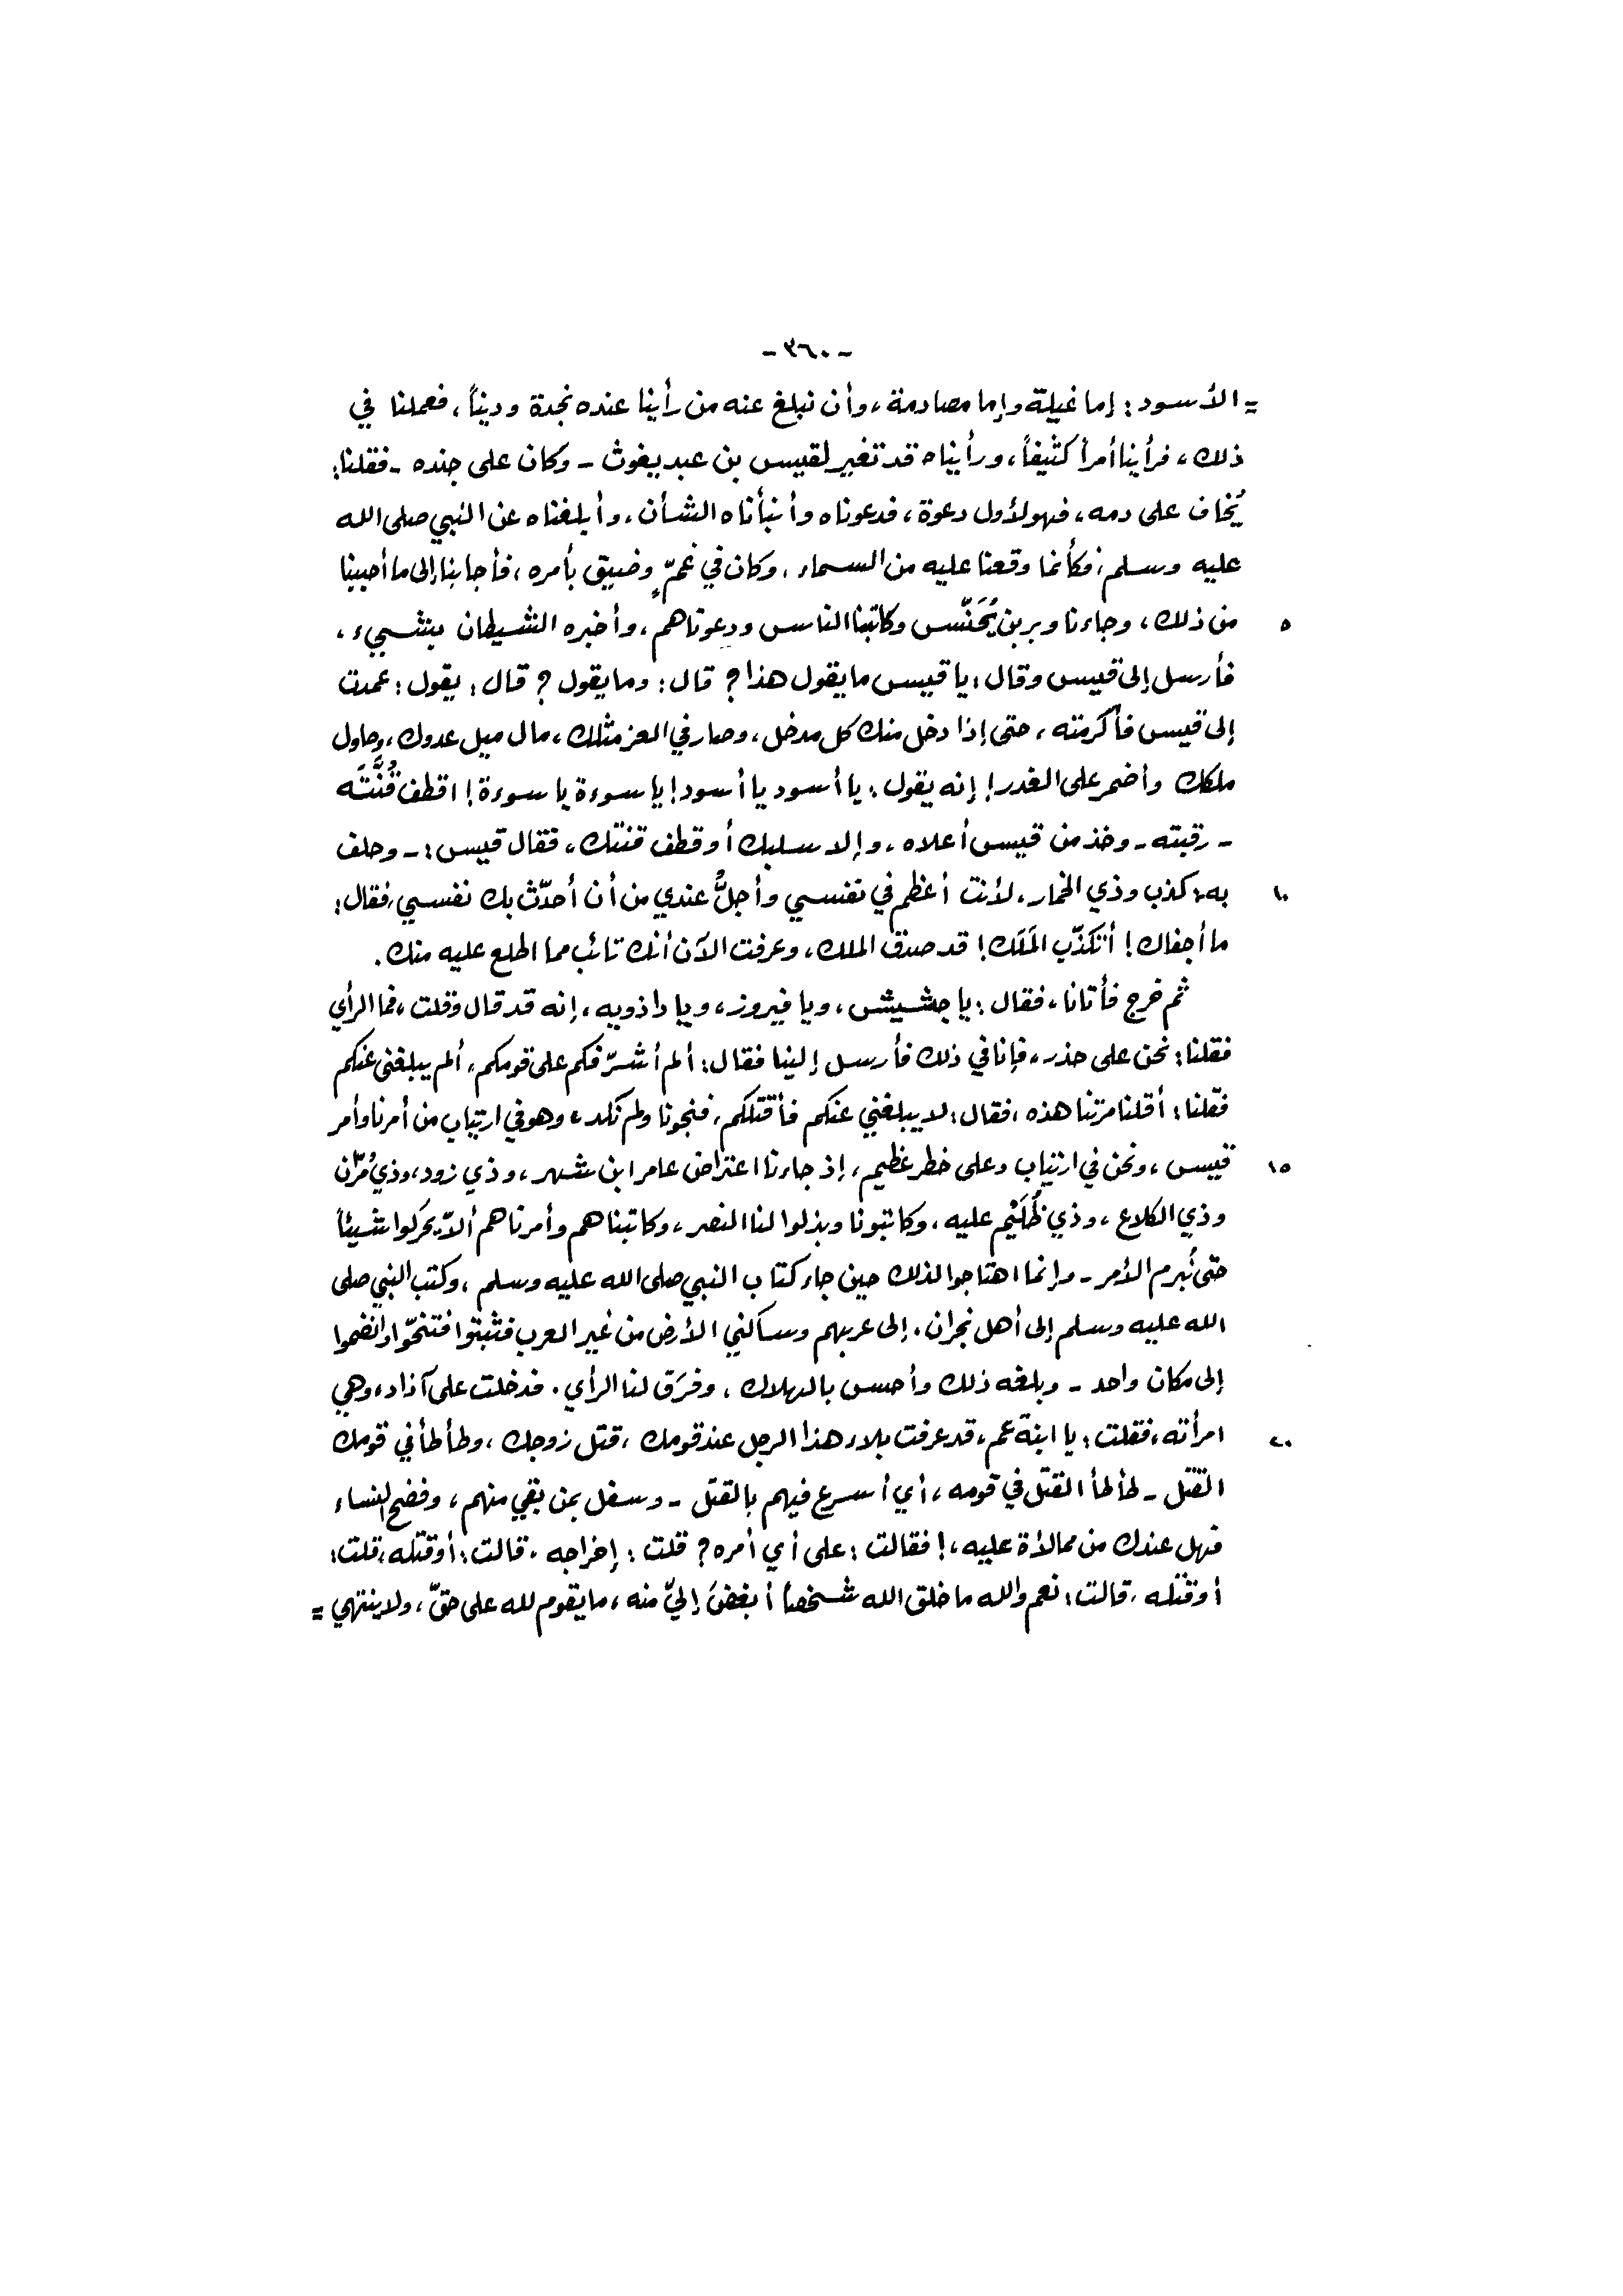 -٣٦٠-
= الأسود: إما غيلة وإما مصادمة، وأن نبلغ عنه من رأينا عنده نجدة وديناً، فعملنا في
ذلك، فرأينا أمراً كثيفاً، ورأيناه قد تغير لقيس بن عبد يغوث - وكان على جنده - فقلنا:
يُخاف على دمه، فهو لأول دعوة، فدعوناه وأنبأناه الشأن، وأبلغناه عن النبي صلى الله
عليه وسلم، فكأنما وقعنا عليه من السماء، وكان في غمّ وضيق بأمره، فأجابنا إلى ما أحببنا
٥ من ذلك، وجاءنا وبر بن يُحَنّس وكاتبنا الناس ودعوناهم، وأخبره الشيطان بشيء،
فأرسل إلى قيس وقال: يا قيس ما يقول هذا؟ قال: وما يقول؟ قال: يقول: عمدت
إلى قيس فأكرمته، حتى إذا دخل منك كل مدخل، وصار في العز مثلك، مال ميل عدوك، وحاول
ملكك وأضمر على الغدر! إنه يقول: يا أسود يا أسود! يا سوءة يا سوءة! اقطف قُنَّتَه
- رقبته - وخذ من قيس أعلاه، وإلا سلبك أو قطف قنتك، فقال قيس: - وحلف
١٠ به: كذب وذي الخمار، لأنت أعظم في نفسي وأجلُّ عندي من أن أحدّث بك نفسي، فقال:
ما أجفاك! أتكذّب المَلَك! قد صدق الملك، وعرفت الآن أنك تائب مما اطلع عليه منك.
ثم خرج فأتانا، فقال: يا جشيش، ويا فيروز، ويا داذويه، إنه قد قال وقلت، فما الرأي
فقلنا: نحن على حذر، فإنا في ذلك فأرسل إلينا فقال: ألم أشرّفكم على قومكم، ألم يبلغني عنكم
فقلنا: أقلنا مرتنا هذه، فقال: لا يبلغني عنكم فأقتلكم، فنجونا ولم نكد، وهو في ارتياب من أمرنا وأمر
١٥ قيس، ونحن في ارتياب وعلى خطر عظيم، إذ جاءنا اعتراض عامر ابن شهر، وذي زود، وذي مُرّان
وذي الكلاع، وذي ظُلَيْم عليه، وكاتبونا وبذلوا لنا النصر، وكاتبناهم وأمرناهم ألاّ يحركوا شيئاً
حتى نُبرم الأمر - وإنما اهتاجوا لذلك حين جاء كتاب النبي صلى الله عليه وسلم، وكتب النبي صلى
الله عليه وسلم إلى أهل نجران، إلى عربهم وساكني الأرض من غير العرب فثبتوا فتنحّوا وانضموا
إلى مكان واحد - وبلغه ذلك وأحس بالهلاك، وفرَق لنا الرأي. فدخلت على آذاد، وهي
٢٠ امرأته، فقلت: يا ابنة عم، قد عرفت بلاء هذا الرجل عند قومك، قتل زوجك، وطأطأ في قومك
القتل - طأطأ القتل في قومه، أي أسرع فيهم بالقتل - وسفل بمن بقي منهم، وفضح النساء
فهل عندك من ممالأة عليه،! فقالت: على أي أمره؟ قلت: إخراجه، قالت: أو قتله، قلت:
أو قتله، قالت: نعم والله ما خلق الله شخصاً أبغضَ إليّ منه، ما يقوم لله على حقّ، ولا ينتهي =